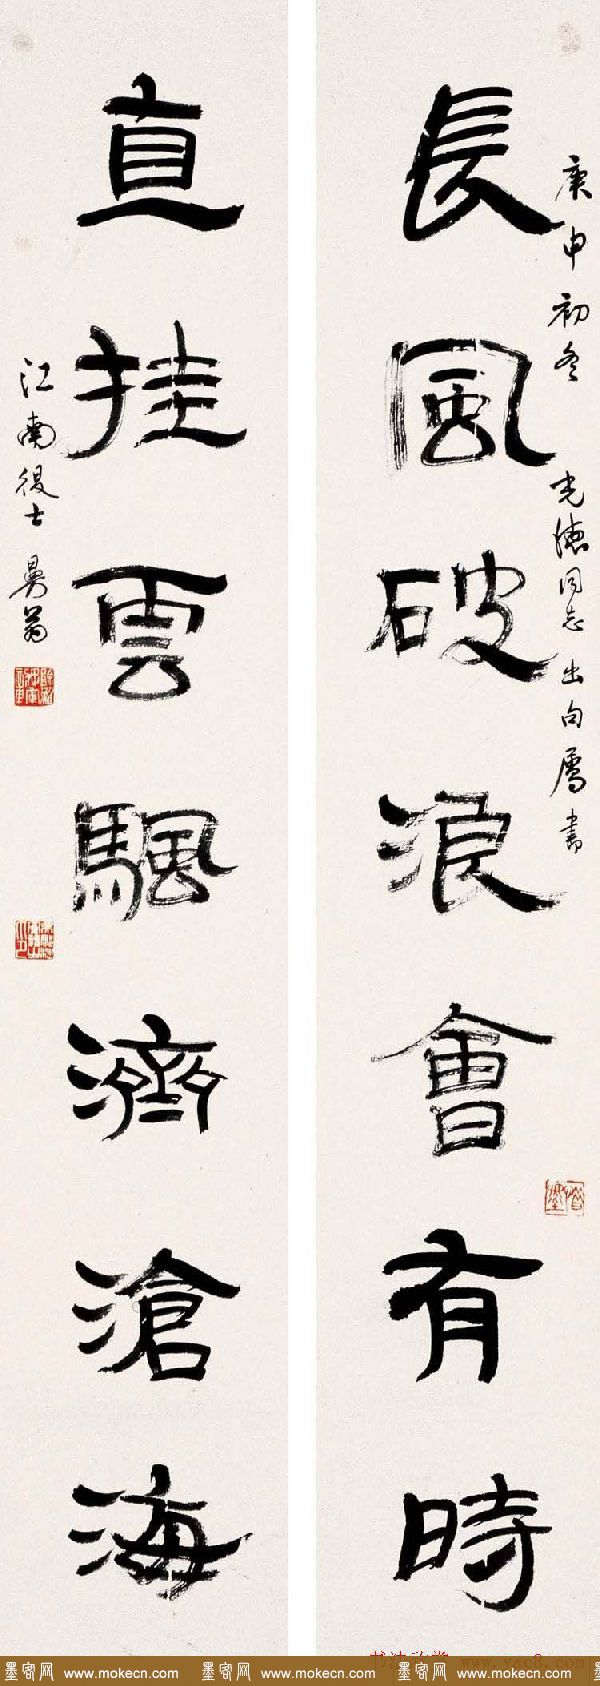 庚申初冬
光德同志出句屬書
長風破浪會有時
直挂雲颿濟滄海
江南後士
翁
墨客网 www.mokecn.com 墨客网 www.mokecn.com 墨客网 www.mokecn.com 墨客网 www.mokecn.com